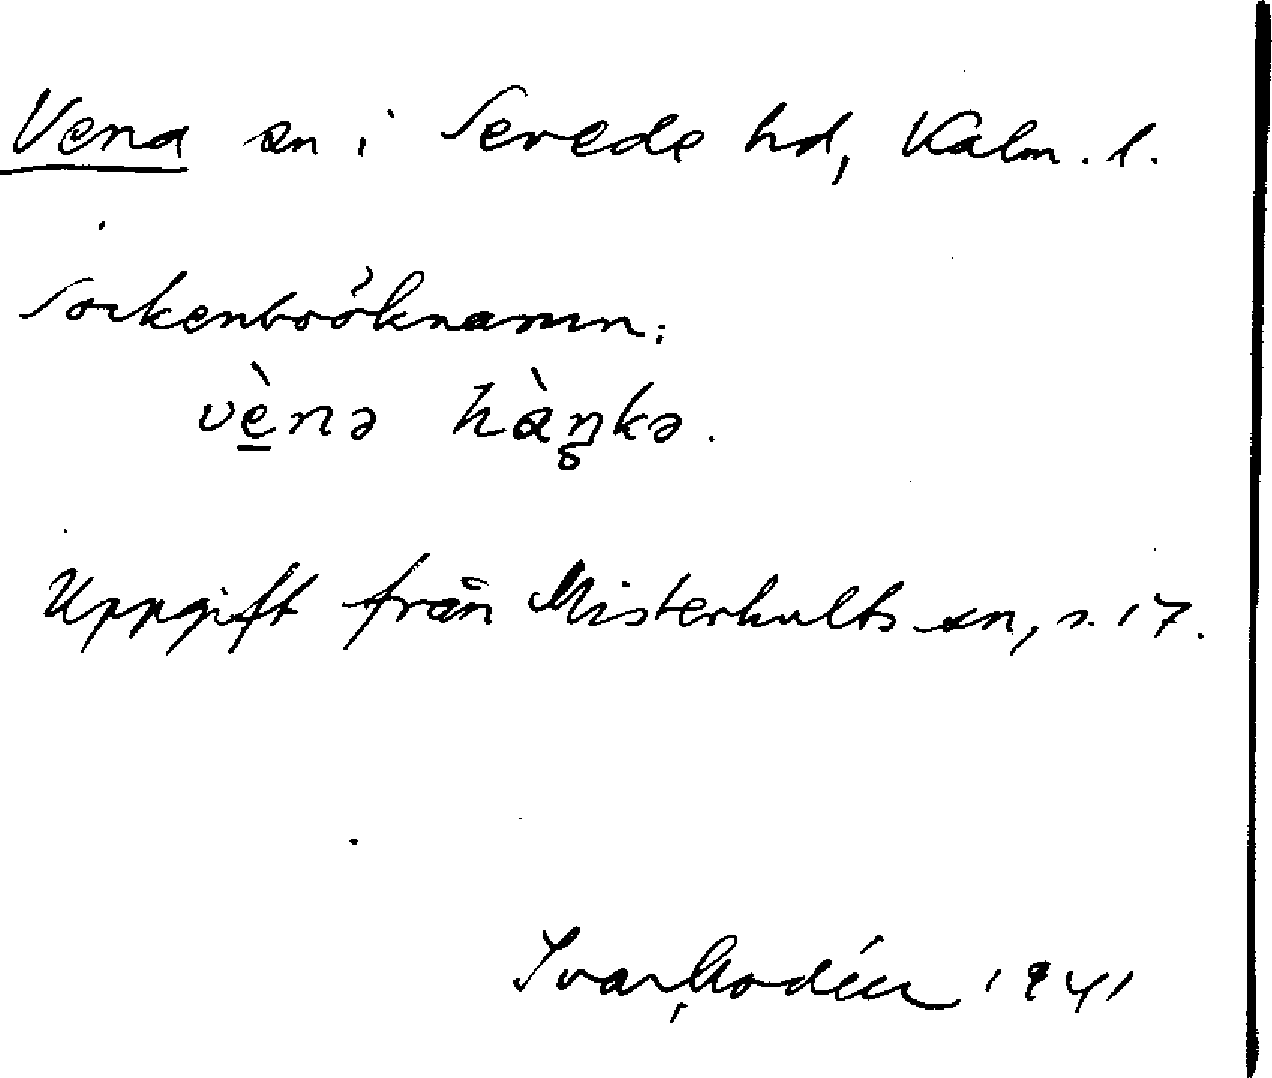 Vena sn i Sevede hd, Kalm. l.
Sockenboöknamn:
vè̱nə hàn̥kə.
Uppgift från Misterhults sn, s. 17.
Ivar Modéer 1941